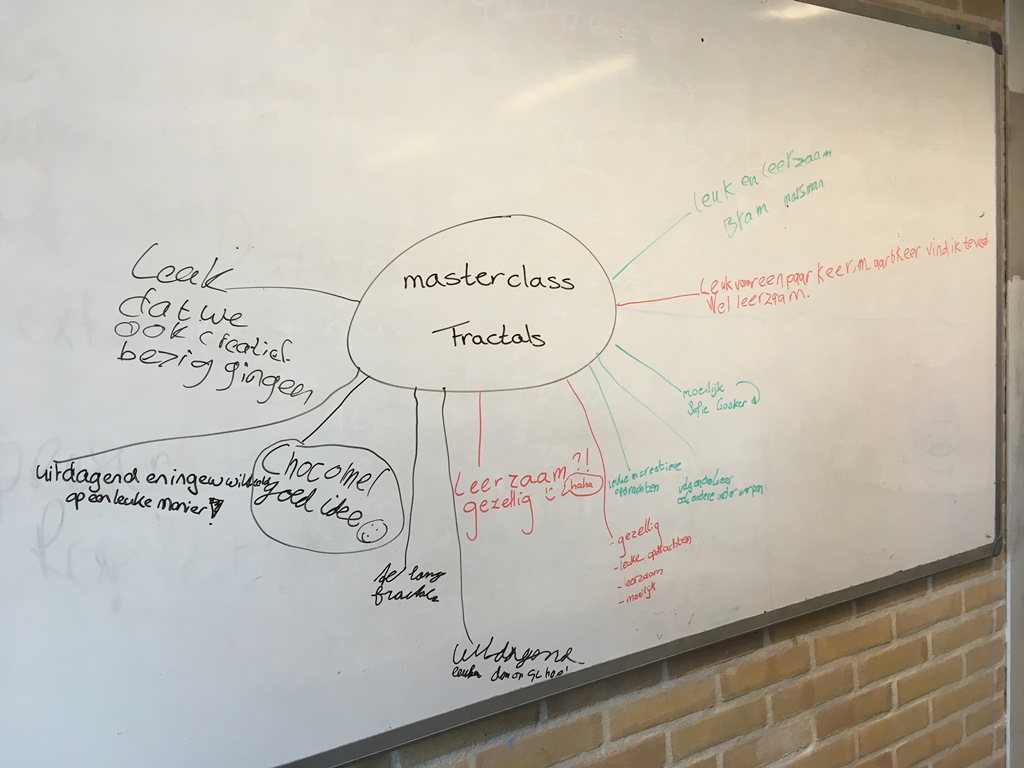 masterclass
Fractals
Leuk
dat we
ook creatief
bezig gingen
uitdagend en
op een leuke manier!
Chocomel
goed idee
fractals
uitdagend
leuker dan
Leerzaam ?!
gezellig
haha
- gezellig
- leuke opdrachten
- leerzaam
- moeilijk
leuke en creatieve
opdrachten
volgende keer
ook andere onderwerpen
moeilijk
Sofie
Leuk voor een paar keer, maar 6 keer vind ik te veel.
Wel leerzaam.
Leuk en leerzaam
Bram